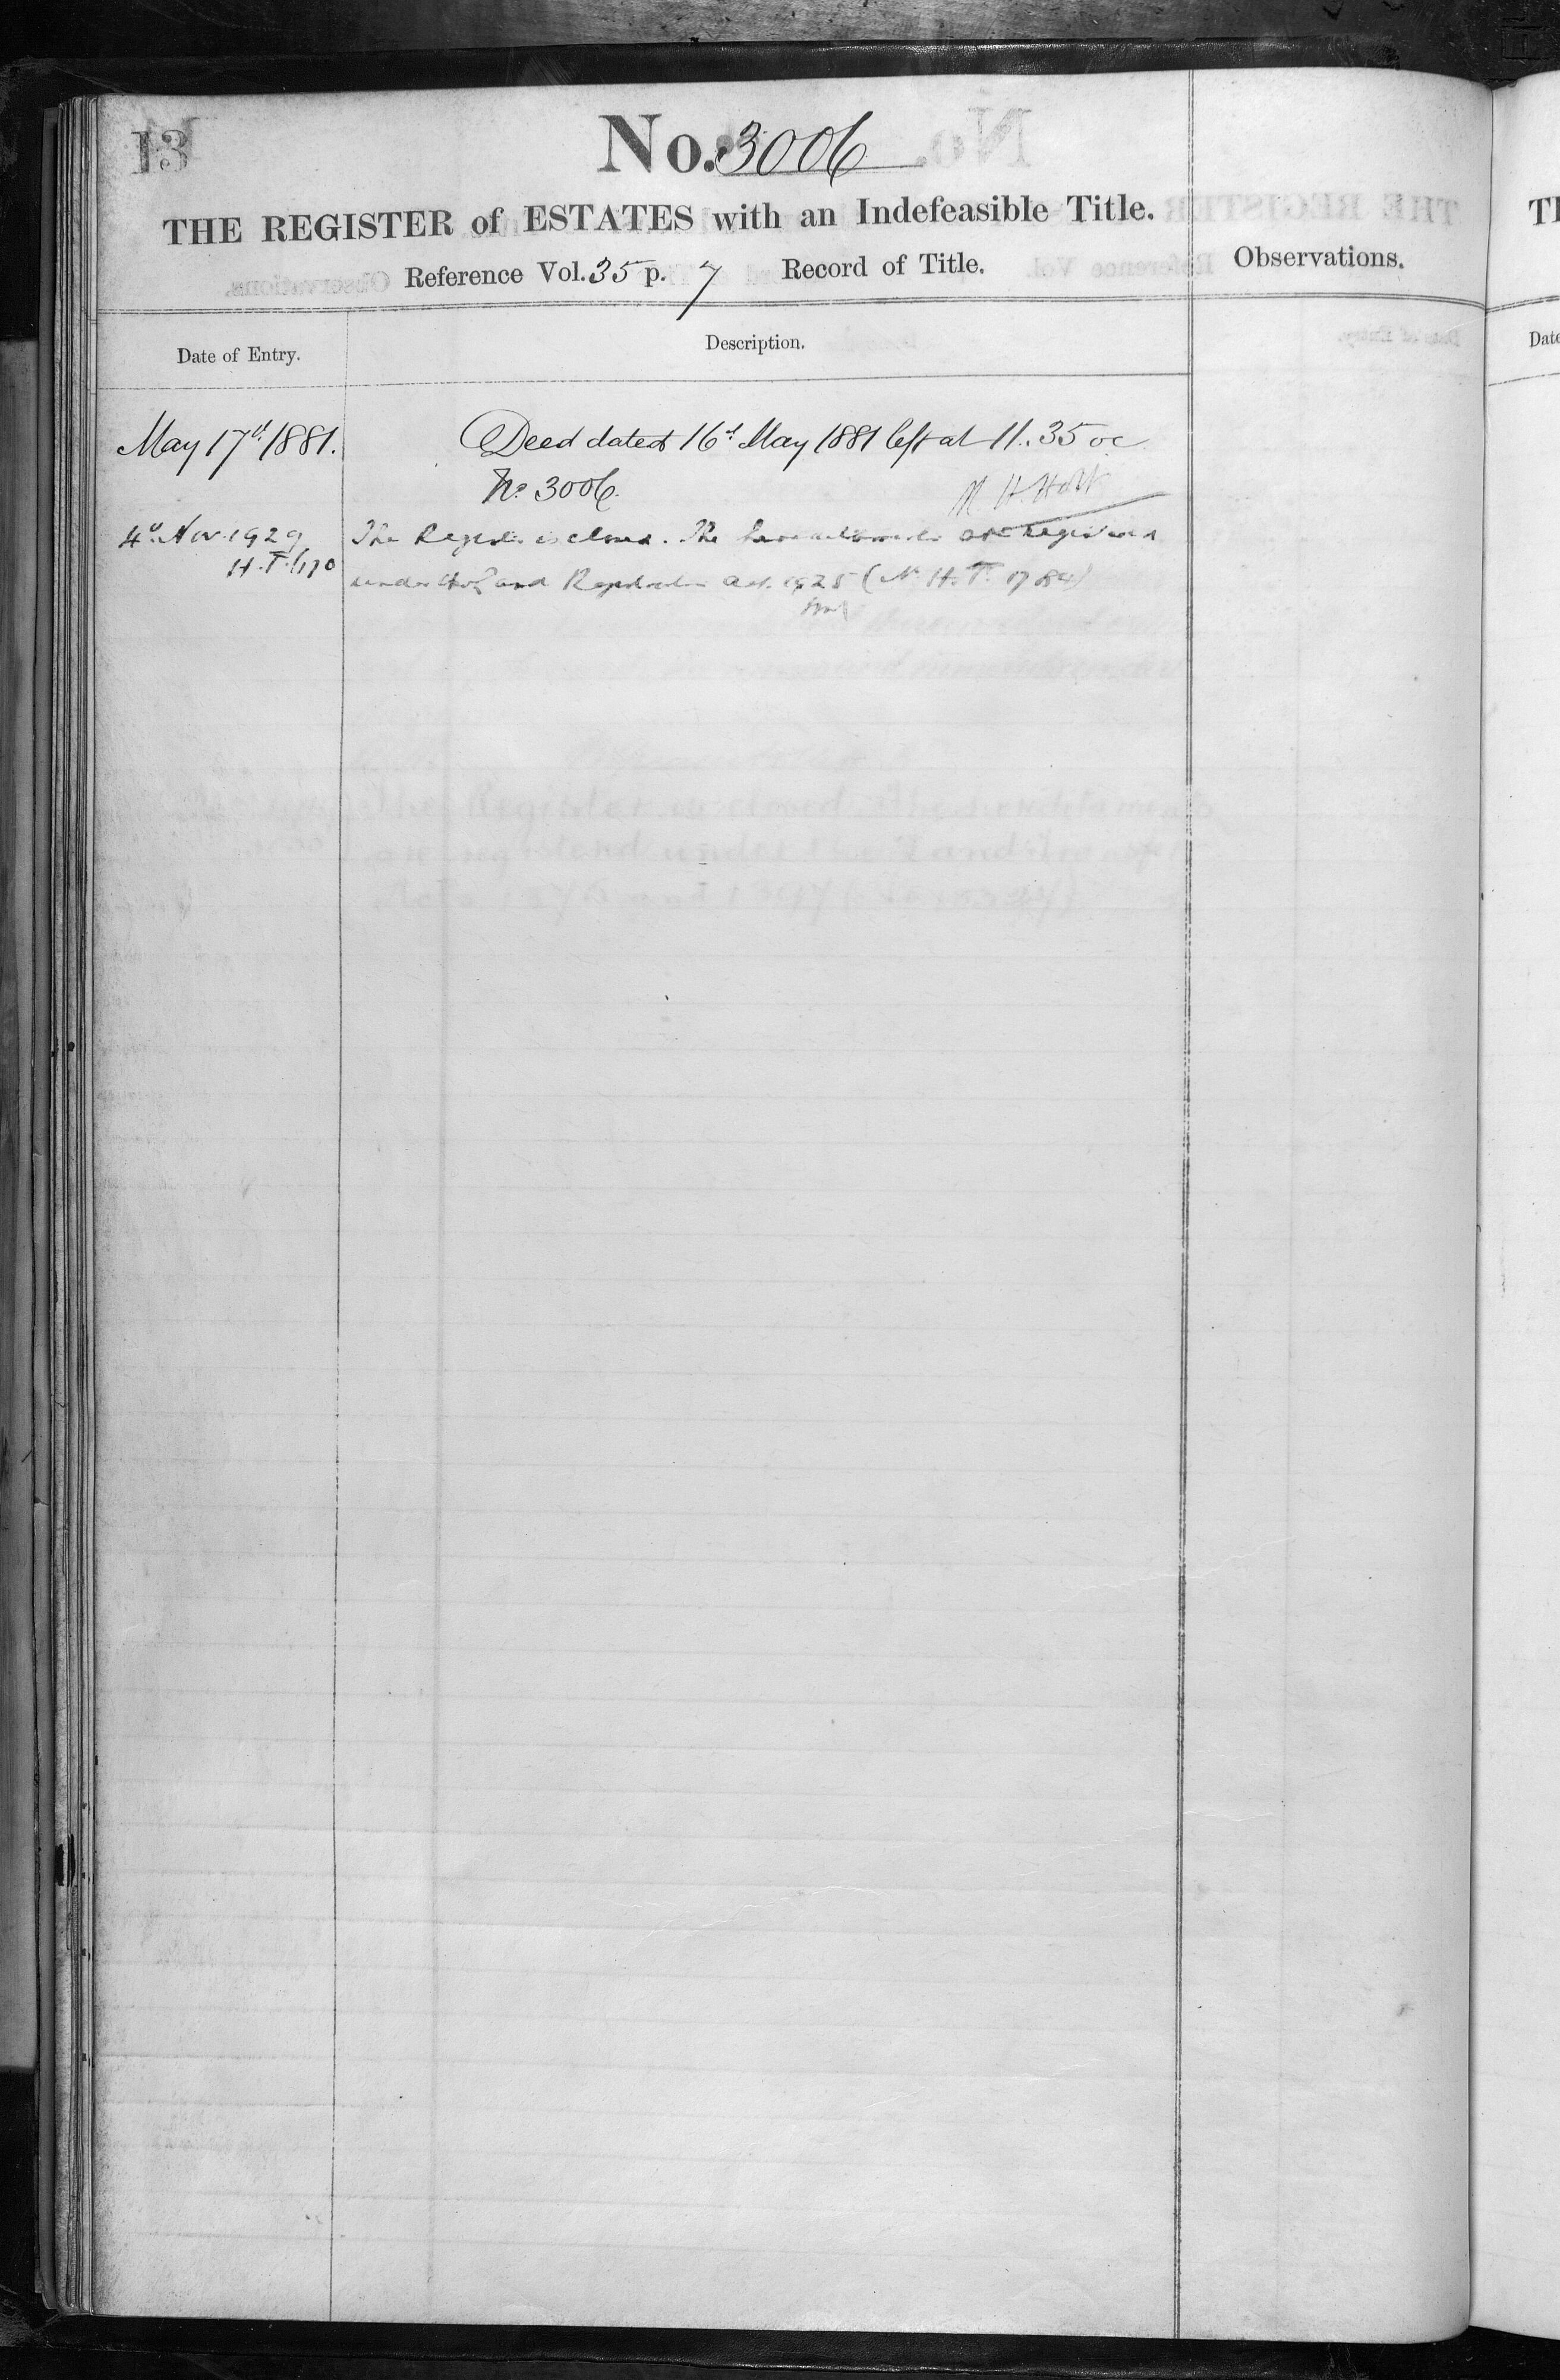 13
No. 3006
THE REGISTER of ESTATES with an Indefeasible Title.
Reference Vol. 35 p. 7 Record of Title.
Observations.
Date of Entry.
Description.
May 17th 1881.
Deed dated 16th May 1881 left at 11.35 oc
No. 3006.
4th Nov. 1929
The Register is closed. The hereditaments are registered
under the Land Registration Act. 1925 (No H.T. 1784)